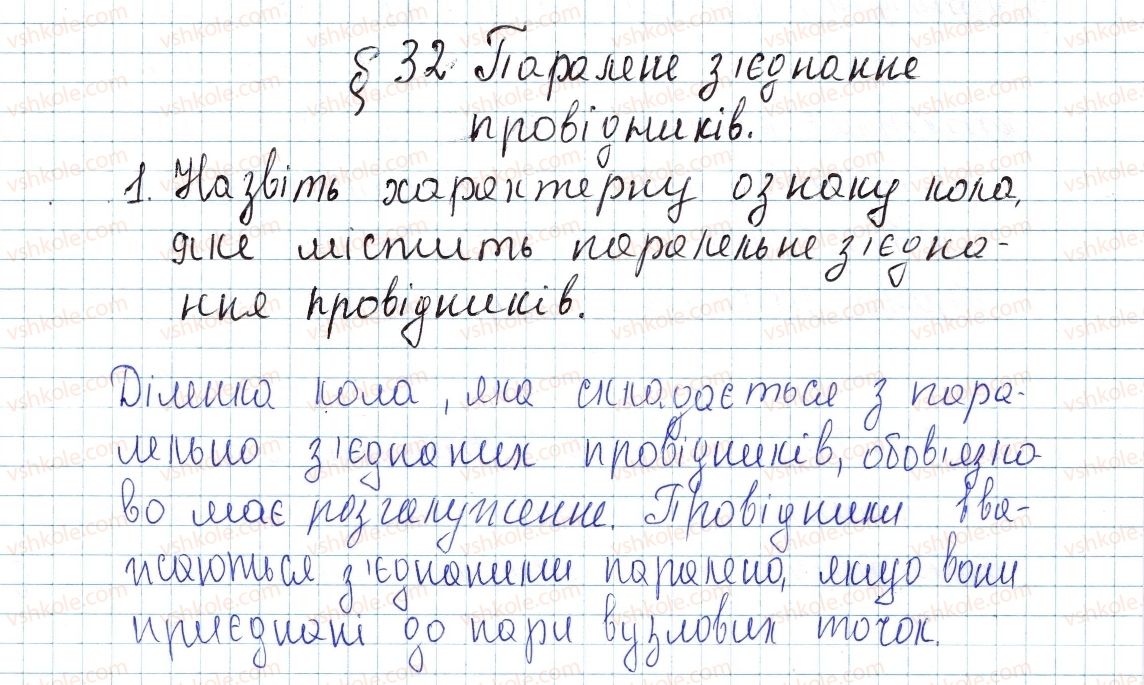 § 32 Паралене з'єднання
провідників.
1. Назвіть характерну ознаку кола,
яке містить паралельне з'єдна-
ння провідників.
Ділянка кола, яка складається з пара-
лельно з'єднаних провідників, обов'язко-
во має розгалуження. Провідники вва-
жаються з'єднаними паралено, якщо вони
приєднані до пари вузлових точок.